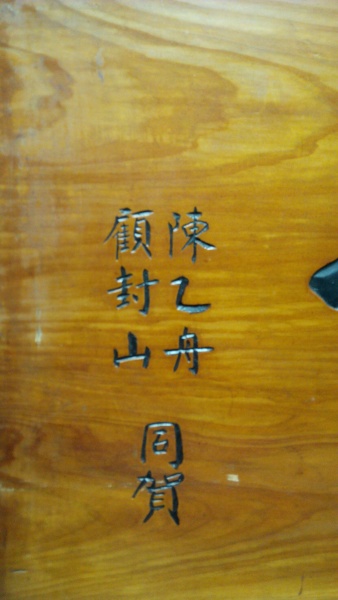 陳乙舟
顧封山
同賀